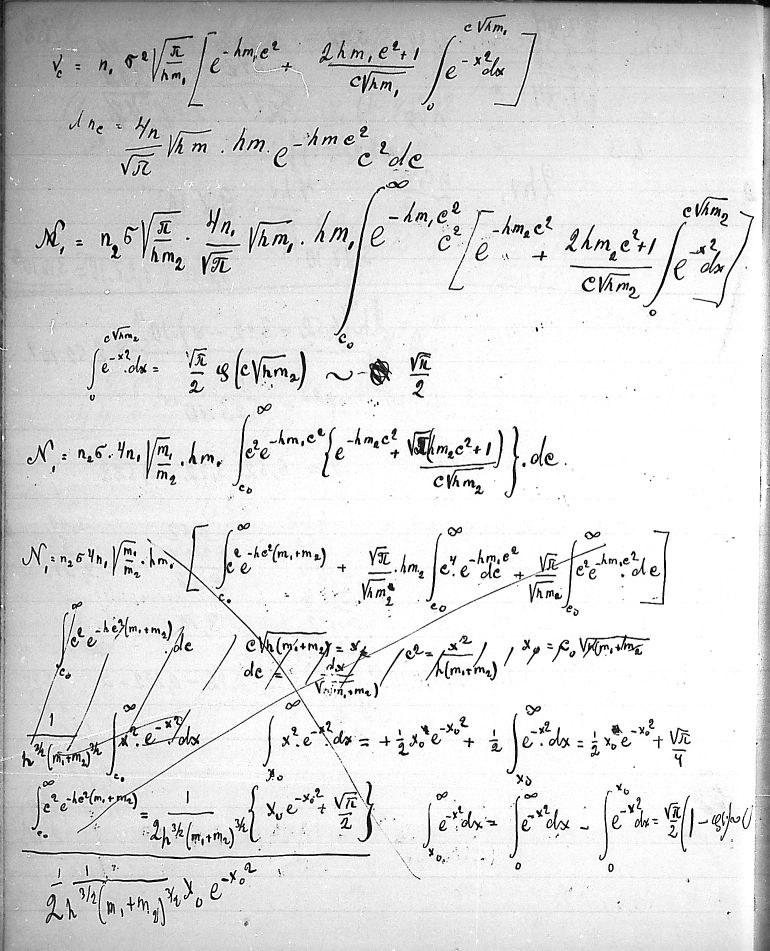 ν_c = n₁ σ² √(π/hm₁) [ e^{-hm₁c²} + (2hm₁c²+1)/(c√hm₁) ∫₀^{c√hm₁} e^{-x²}dx ]
dn_c = 4n/√π √hm · hm · e^{-hmc²} c² dc
𝒩₁ = n₂σ √(π/hm₂) · 4n₁/√π √hm₁ · hm₁ ∫_{c₀}^∞ e^{-hm₁c²} c² [ e^{-hm₂c²} + (2hm₂c²+1)/(c√hm₂) ∫₀^{c√hm₂} e^{-x²}dx ]
∫₀^{c√hm₂} e^{-x²}·dx = √π/2 φ(c√hm₂) ∼ √π/2
𝒩₁ = n₂σ·4n₁ √(m₁/m₂) · hm₁ ∫_{c₀}^∞ c² e^{-hm₁c²} { e^{-hm₂c²} + √π(hm₂c²+1)/(c√hm₂) } · dc.
𝒩₁ = n₂σ 4n₁ √(m₁/m₂) · hm₁ [ ∫_{c₀}^∞ c² e^{-hc²(m₁+m₂)} + √π/√hm₂ · hm₂ ∫_{c₀}^∞ c⁴·e^{-hm₁c²} dc + √π/√hm₂ ∫_{c₀}^∞ c² e^{-hm₁c²}·dc ]
∫_{c₀}^∞ c² e^{-hc²(m₁+m₂)} dc c√h(m₁+m₂) = x dc = dx/√h(m₁+m₂) , c² = x²/h(m₁+m₂) , x₀ = c₀√h(m₁+m₂)
1/(h^{3/2}(m₁+m₂)^{3/2}) ∫_{c₀}^∞ x²·e^{-x²}dx ∫_{x₀}^∞ x²·e^{-x²}dx = +½x₀e^{-x₀²} + ½ ∫_{x₀}^∞ e^{-x²}·dx = ½x₀e^{-x₀²} + √π/4
∫_{c₀}^∞ c² e^{-hc²(m₁+m₂)} = 1/(2h^{3/2}(m₁+m₂)^{3/2}) { x₀e^{-x₀²} + √π/2 } ∫_{x₀}^∞ e^{-x²}dx = ∫₀^∞ e^{-x²}dx - ∫₀^{x₀} e^{-x²}dx = √π/2 (1-φ
½ 1/(h^{3/2}(m₁+m₂)^{3/2}) x₀ e^{-x₀²}